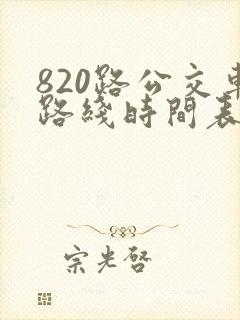 820路公交車
路綫時間表
宗光啓